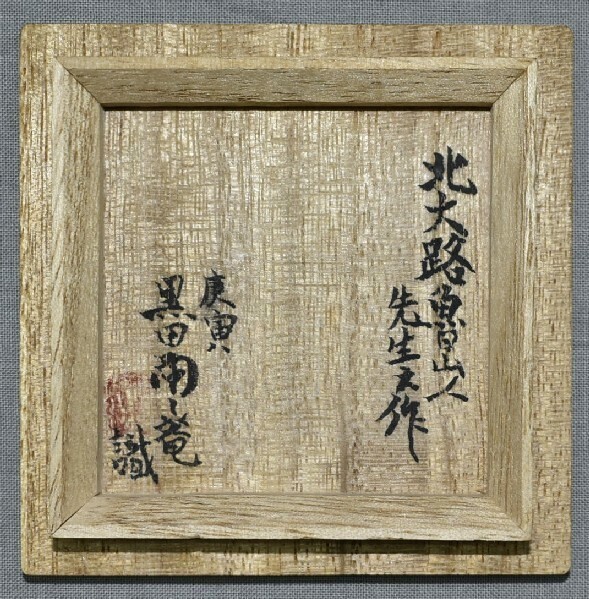 北大路魯山人
先生之作
庚寅
黒田陶々菴
識